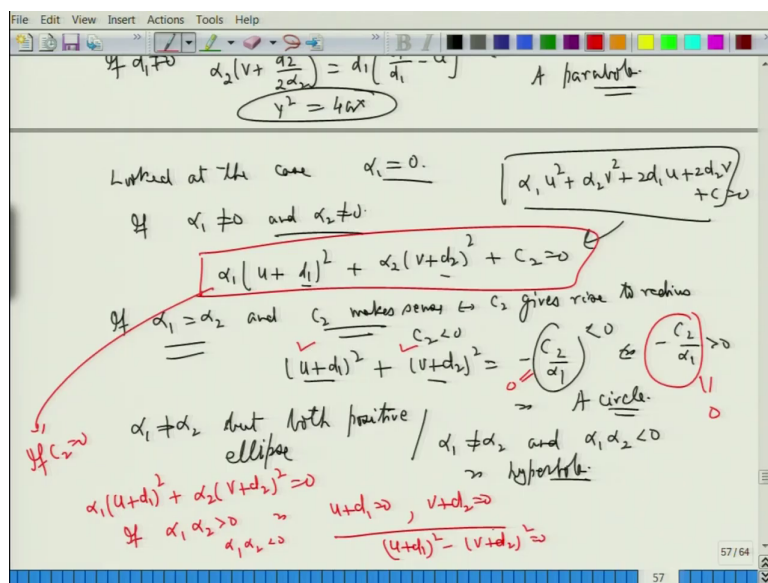 File Edit View Insert Actions Tools Help
If d₁≠0 α₂(v + d₂/2α₂) = d₁[ /d₁ - u]
A parabola.
y² = 4ax
Looked at the case α₁ = 0.
α₁u² + α₂v² + 2d₁u + 2d₂v + C = 0
If α₁ ≠ 0 and α₂ ≠ 0.
α₁(u + d₁)² + α₂(v + d₂)² + C₂ = 0
If α₁ = α₂ and C₂ makes sense ↔ C₂ gives rise to radius
C₂ < 0
(u + d₁)² + (v + d₂)² = - (C₂/α₁) < 0 ⇔ - C₂/α₁ > 0
0 =
= 0
⇒ A circle.
α₁ ≠ α₂ but both positive
ellipse
α₁ ≠ α₂ and α₁α₂ < 0
⇒ hyperbola.
If C₂ = 0
α₁(u + d₁)² + α₂(v + d₂)² = 0
If α₁α₂ > 0 ⇒ u + d₁ = 0, v + d₂ = 0
α₁α₂ < 0 (u + d₁)² - (v + d₂)² = 0
57 / 64
57